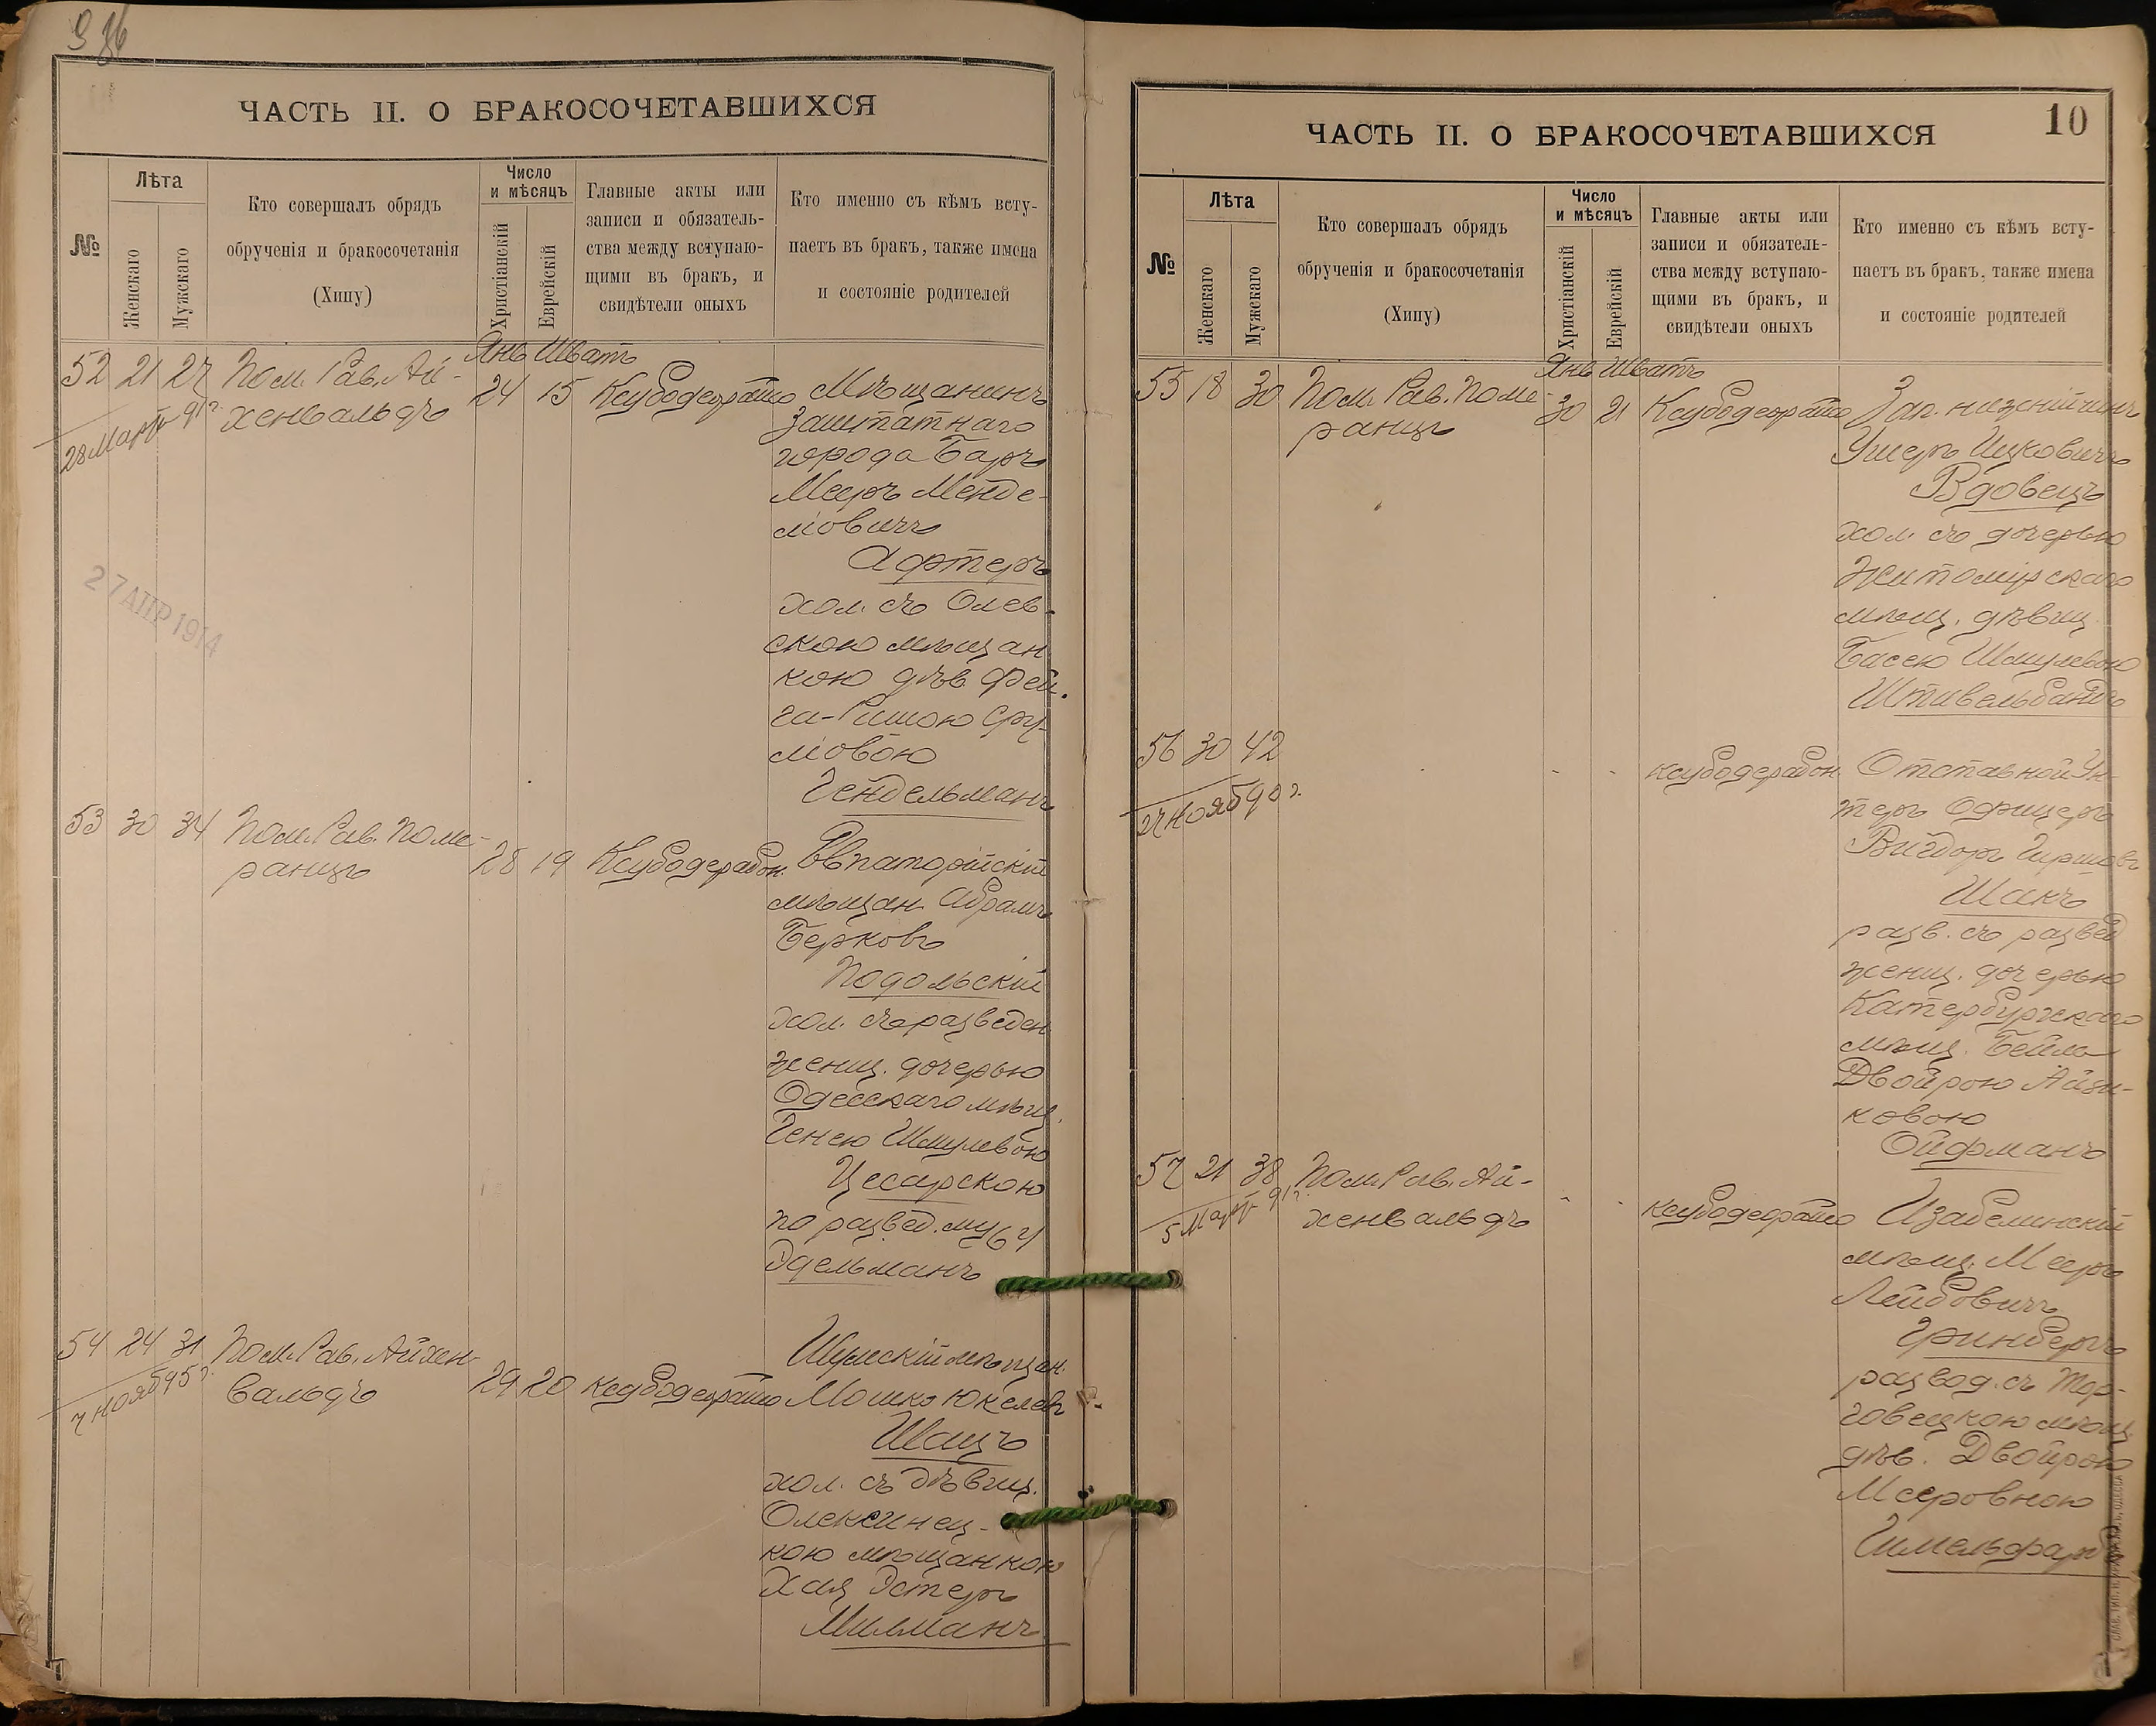 9
ЧАСТЬ II. О БРАКОСОЧЕТАВШИХСЯ
№
Лѣта
Женскаго
Мужскаго
Кто совершалъ обрядъ
обрученія и бракосочетанія
(Хипу)
Число
и мѣсяцъ
Христіанскій
Еврейскій
Главные акты или
записи и обязатель-
ства между вступаю-
щими въ бракъ, и
свидѣтели оныхъ
Кто именно съ кѣмъ всту-
паетъ въ бракъ, также имена
и состояніе родителей
Янв Шватъ
52 21 27 Пом. Рав. Ай-
хенвальдъ
24 15
28 Март 91 г.
Мѣщанинъ
Заштатнаго
города Баръ
Мееръ Менде-
ліовичъ
Афтеръ
хол. съ Олев-
скою мѣщан
кою дѣв Фей-
га-Римою Сру-
ліовою
Гендельманъ
27 АПР 1914
53 30 34 Пом. Рав. Поме-
ранцъ
28 19
Евпаторійскій
мѣщан Абрамъ
Берковъ
Подольскій
хол. съ разведен
женщ. дочерью
Одесскаго мѣщ.
Генею Шмулевою
Цесарскою
по развед. мужу
Эдельманъ
54 24 31 Пом. Рав. Айхен-
вальдъ
29 20
7 Нояб 95 г.
Шумскій мѣщан.
Мошко Юкелевъ
Шацъ
хол. съ дѣвиц.
Олексинец-
кою мѣщанкою
Хая Эстеръ
Милманъ
10
ЧАСТЬ II. О БРАКОСОЧЕТАВШИХСЯ
№
Лѣта
Женскаго
Мужскаго
Кто совершалъ обрядъ
обрученія и бракосочетанія
(Хипу)
Число
и мѣсяцъ
Христіанскій
Еврейскій
Главные акты или
записи и обязатель-
ства между вступаю-
щими въ бракъ, и
свидѣтели оныхъ
Кто именно съ кѣмъ всту-
паетъ въ бракъ, также имена
и состояніе родителей
Янв Шватъ
55 18 30 Пом. Рав. Поме-
ранцъ
30 21
Зап. нижній чинъ
Ушеръ Ицковичъ
Вдовецъ
хол. съ дочерью
Житомірскаго
мѣщ. дѣвиц
Басею Шмулевою
Штивельбандъ
56 30 42
27 Нояб 90 г.
Отставной Ун-
теръ Офицеръ
Вигдоръ Гиршовъ
Шакъ
разв. съ развед
женщ. дочерью
Катербургскаго
мѣщ. Бейла
Двойрою Айзи-
ковою
Ойфманъ
57 21 38 Пом. Рав. Ай-
хенвальдъ
5 Март 91 г.
Изабелинскій
мѣщ. Мееръ
Лейбовичъ
Гринбергъ
развод. съ Тор-
говецкою мѣщ
дѣв. Двойрою
Мееровною
Гимельфарбъ